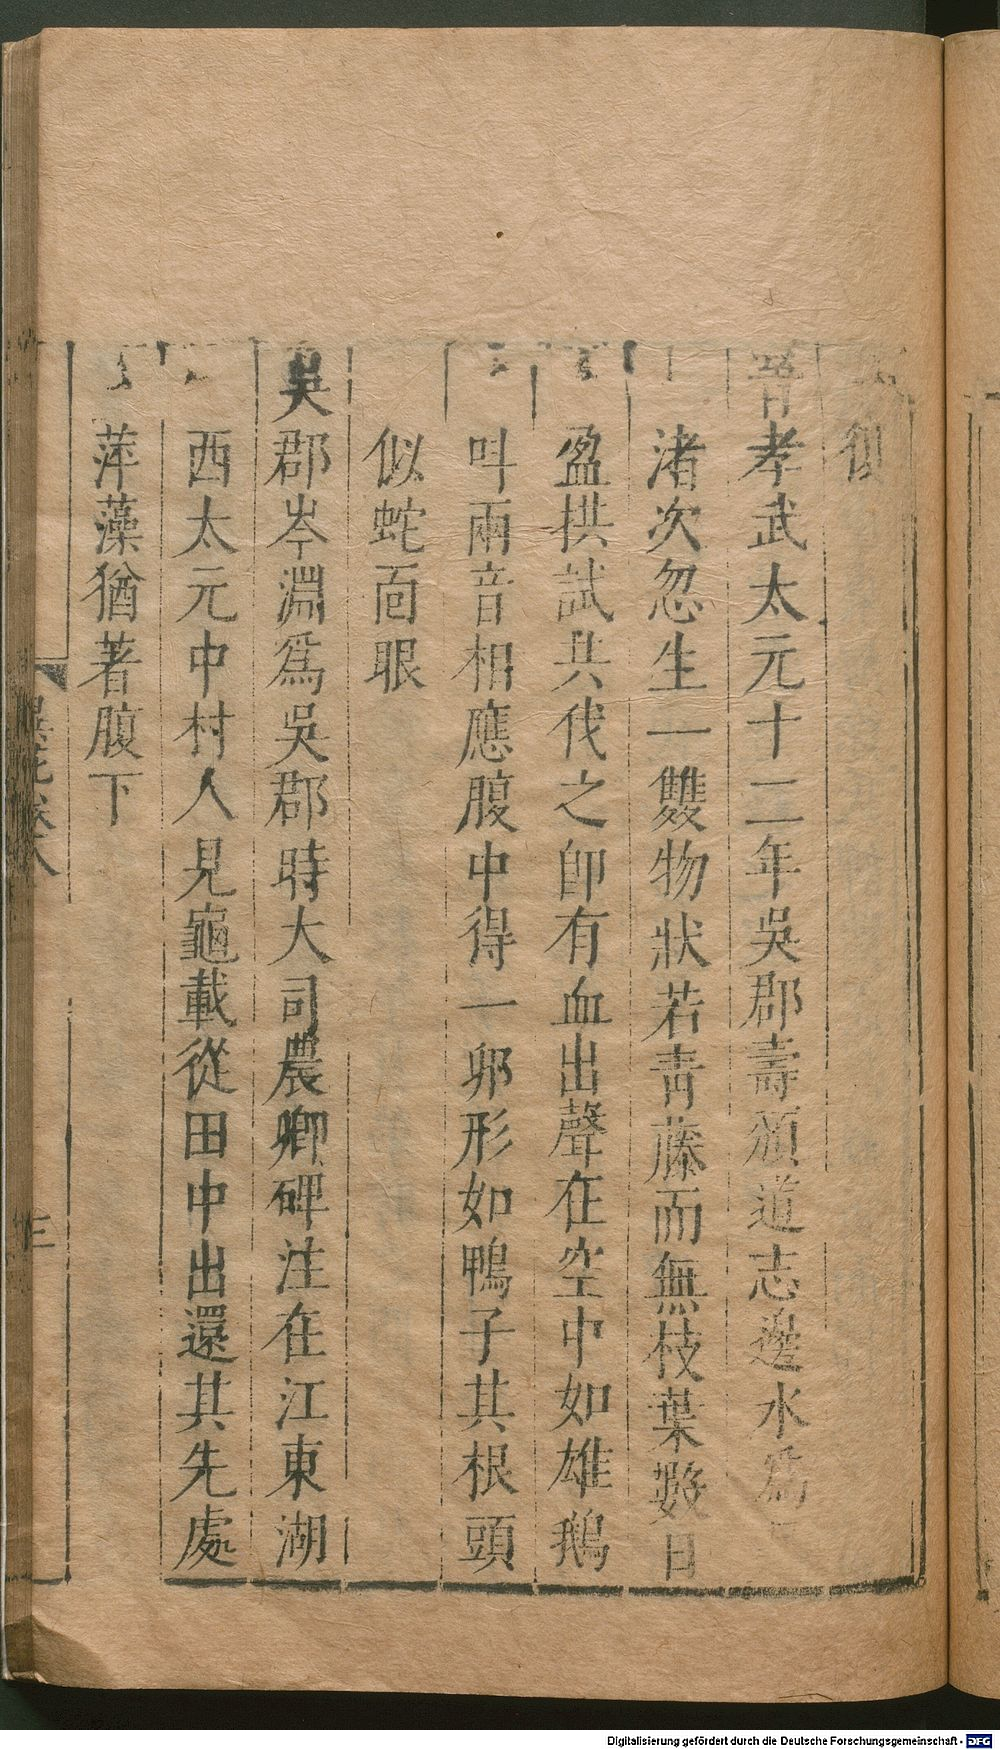 晉孝武太元十二年吳郡壽頒道志邊水為
渚次忽生一雙物狀若青藤而無枝葉數日
盈拱試共伐之即有血出聲在空中如雄鵝
呌兩音相應腹中得一卵形如鴨子其根頭
似蛇面眼
吳郡岑淵爲吳郡時大司農卿碑注在江東湖
西太元中村人見龜載從田中出還其先處
萍藻猶著腹下
三
Digitalisierung gefördert durch die Deutsche Forschungsgemeinschaft - DFG